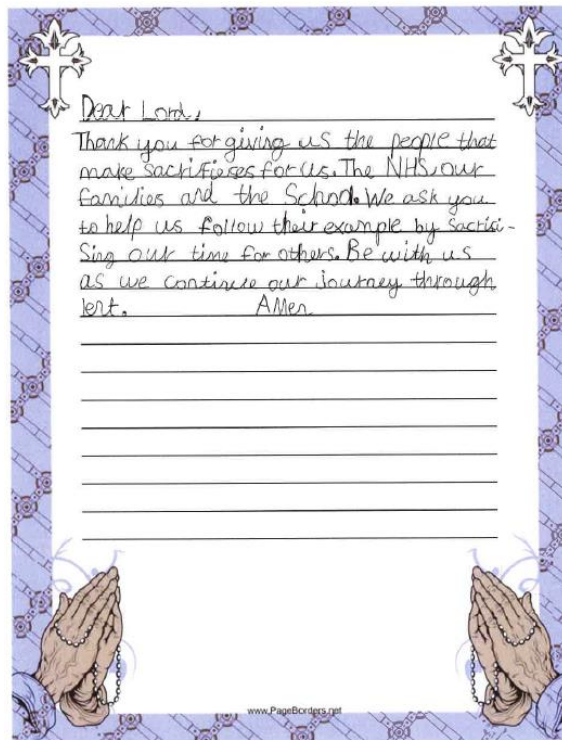 Dear Lord,
Thank you for giving us the people that
make sacrifieses for us. The NHS, our
families and the School. We ask you
to help us follow their example by sacrici-
sing our time for others. Be with us
as we continue our journey through
lent. AMen
www.PageBorders.net